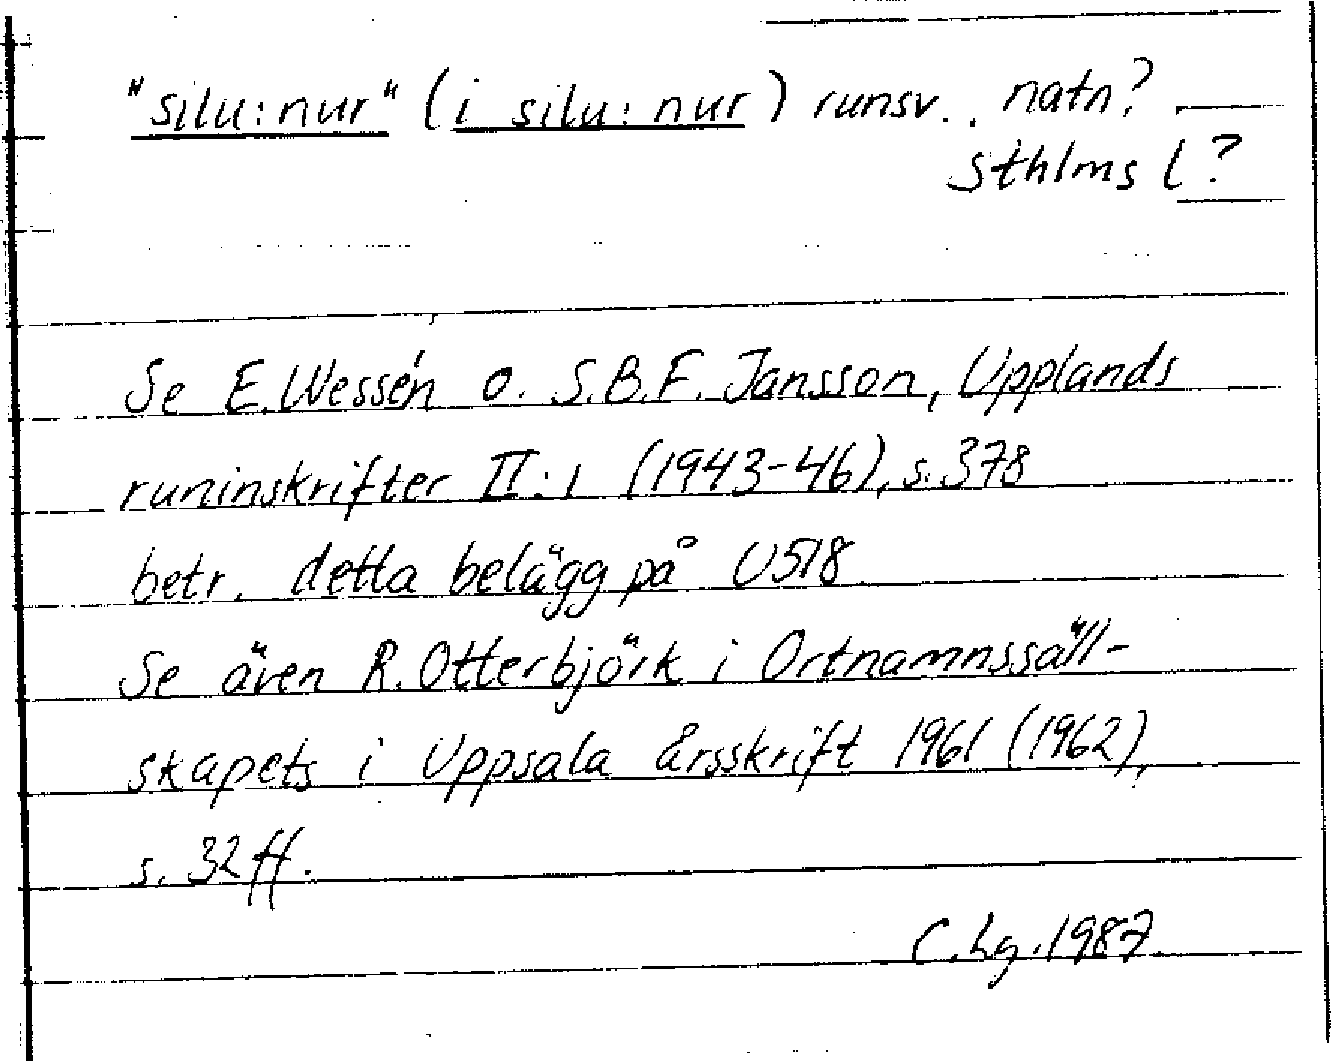 "silu:nur" (i silu: nur) runsv., natn?
Sthlms l?
Se E. Wessén o. S.B.F. Jansson, Upplands
runinskrifter II:1 (1943-46), s. 378
betr. detta belägg på U518
Se även R. Otterbjörk i Ortnamnssäll-
skapets i Uppsala årsskrift 1961 (1962),
s. 32 ff.
C. Lg. 1987